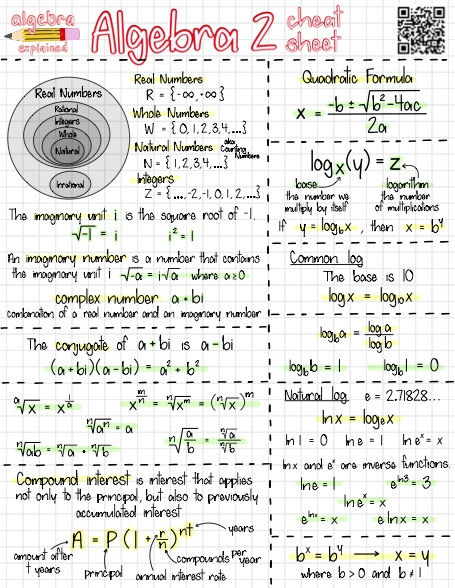 algebra explained
Algebra 2 cheat sheet
Real Numbers
Rational
Integers
Whole
Natural
Irrational
Real Numbers
R = {-∞, +∞}
Whole Numbers
W = {0, 1, 2, 3, 4, ...}
Natural Numbers aka Counting Numbers
N = {1, 2, 3, 4, ...}
Integers
Z = {..., -2, -1, 0, 1, 2, ...}
The imaginary unit i is the square root of -1.
√-1 = i i² = 1
An imaginary number is a number that contains
the imaginary unit i √-a = i√a where a≥0
complex number a + bi
combination of a real number and an imaginary number
The conjugate of a + bi is a - bi
(a + bi)(a - bi) = a² + b²
ᵃ√x = x^(1/a) x^(m/n) = ⁿ√xᵐ = (ⁿ√x)ᵐ
ⁿ√aⁿ = a
ⁿ√ab = ⁿ√a · ⁿ√b ⁿ√(a/b) = ⁿ√a / ⁿ√b
Compound interest is interest that applies
not only to the principal, but also to previously
accumulated interest
A = P(1 + r/n)^nt
years
amount after t years
principal
annual interest rate
compounds per year
Quadratic Formula
x = (-b ± √(b² - 4ac)) / 2a
logₓ(y) = z
base
the number we
multiply by itself
logarithm
the number
of multiplications
If y = log_b x , then x = bʸ
Common log
The base is 10
log x = log₁₀x
log_b a = log a / log b
log_b b = 1 log_b 1 = 0
Natural log e = 2.71828...
ln x = logₑx
ln 1 = 0 ln e = 1 ln eˣ = x
ln x and eˣ are inverse functions.
ln e = 1 e^(ln 3) = 3
ln eˣ = x
e^(ln x) = x e ln x = x
bˣ = bʸ → x = y
where b > 0 and b ≠ 1